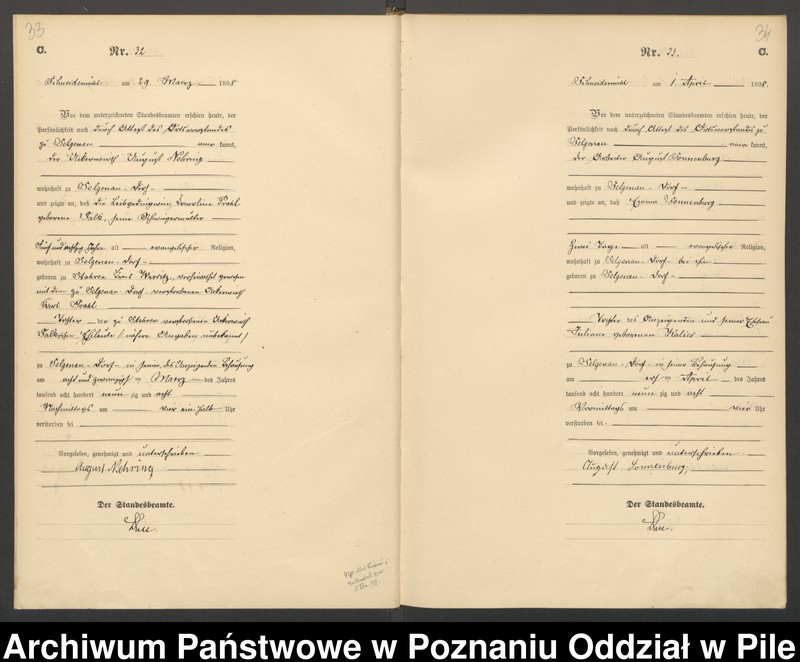 33
C.
Nr. 32
Schneidemühl am 29. Maerz 1898
Vor dem unterzeichneten Standesbeamten erschien heute, der
Persönlichkeit nach durch Attest des Ortsvorstandes
zu Selgenau anerkannt,
der Ackerwirth August Nehring
wohnhaft zu Selgenau-Dorf
und zeigte an, daß die Leibgedingerin, Karoline Prahl
geborene Falk, seine Schwiegermutter
fünf und achtzig Jahre alt evangelischer Religion,
wohnhaft zu Selgenau-Dorf
geboren zu Stahren Kreis Wirsitz, verheirathet gewesen
mit dem zu Selgenau-Dorf verstorbenen Ackerwirth
Karl Prahl
Tochter der zu Stahren verstorbenen Ackerwirth
Falk'schen Eheleute (nähere Angaben unbekannt)
zu Selgenau-Dorf in seiner, des Anzeigenden Behausung
am acht und zwanzigsten Maerz des Jahres
tausend acht hundert neunzig und acht
Nachmittags um vier ein halb Uhr
verstorben sei
Vorgelesen, genehmigt und unterschrieben
August Nehring
Der Standesbeamte.
34
C.
Nr. 33.
Schneidemühl am 1. April 1898.
Vor dem unterzeichneten Standesbeamten erschien heute, der
Persönlichkeit nach durch Attest des Ortsvorstandes zu
Selgenau anerkannt,
der Arbeiter August Sonnenburg
wohnhaft zu Selgenau-Dorf
und zeigte an, daß Emma Sonnenburg
zwei Tage alt evangelischer Religion,
wohnhaft zu Selgenau-Dorf bei ihm
geboren zu Selgenau-Dorf
Tochter des Anzeigenden und seiner Ehefrau
Juliane geborenen
zu Selgenau-Dorf in seiner Behausung
am ersten April des Jahres
tausend acht hundert neunzig und acht
Vormittags um vier Uhr
verstorben sei.
Vorgelesen, genehmigt und unterschrieben
August Sonnenburg
Der Standesbeamte.
Archiwum Państwowe w Poznaniu Oddział w Pile